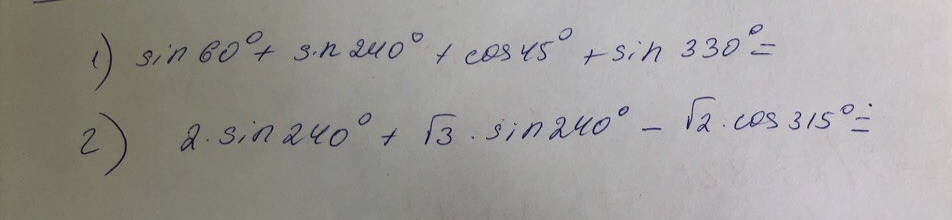 1) sin 60° + sin 240° + cos 45° + sin 330° =
2) 2 · sin 240° + √3 · sin 240° - √2 · cos 315° =